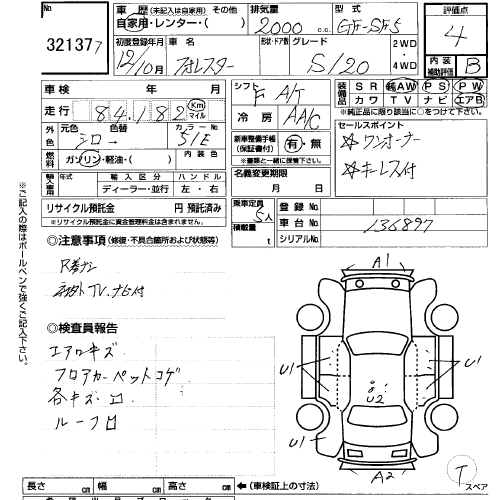 No.
321377
車歴 (未記入は自家用) その他
自家用・レンタル・( )
排気量
2000 c.c.
型式
GF-SF5
評価点
4
初度登録年月
12/10月
車名
フォレスター
形状・ドア数 グレード
S/20
2WD
・
4WD
内装
補助評価
B
車検 年 月
走行 84,182 Km マイル
シフト
F A/T
冷房
AA/C
装備品
SR 純AW PS PW
カワ TV ナビ エアB
※純正品に限り該当に○をつけて下さい。
外色
元色 色替 カラーNo.
シロー 51E
燃料
ガソリン・軽油・( )
内装色
新車整備手帳
(保証書付)
有・無
※書類と一緒に保管下さい。
セールスポイント
☆ワンオーナー
☆キーレス付
輸入車
年式 輸入区分 ハンドル
ディーラー・並行 左・右
名義変更期限
月 日
リサイクル預託金 円 預託済み
※リサイクル預託金に資金管理料金は含まれません。
乗車定員
5人
積載量
t
登録No.
車台No. 136897
シリアルNo.
◎注意事項 (修復・不具合箇所および状態等)
R券ナシ
社外TV.ナビ付
◎検査員報告
エアロキズ
フロアカーペットコゲ
各キズ凹
ルーフ凹
A1
U1
U1
U2
U1
A2
T
スペア
長さ cm 幅 cm 高さ cm ←(車検証上の寸法)
※ご記入の際はボールペンで強くご記入下さい。